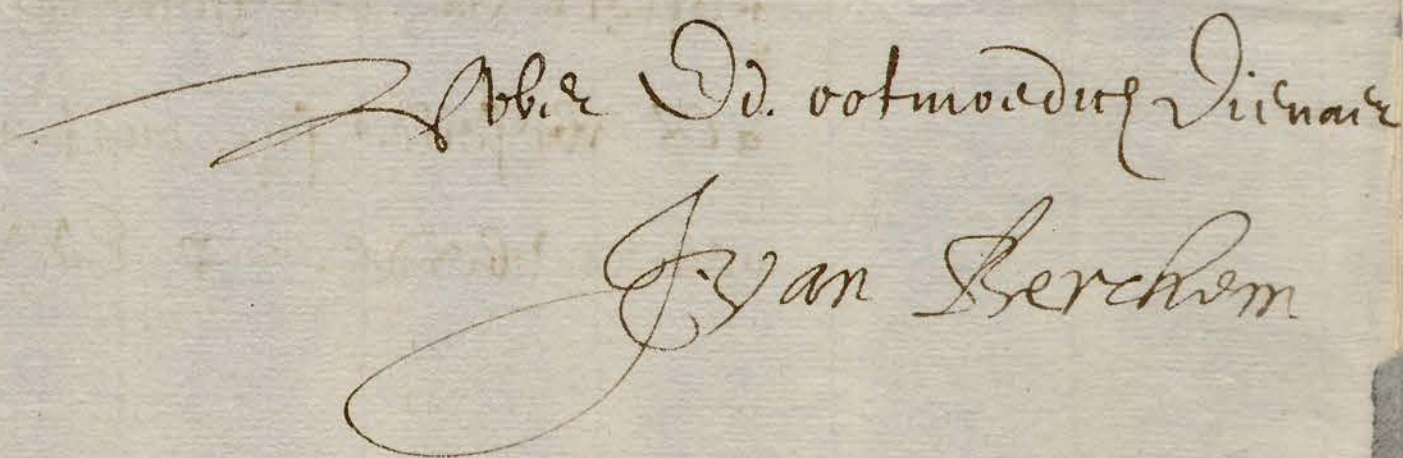 Uwer Ed. ootmoedich Dienaer
J. van Berchem